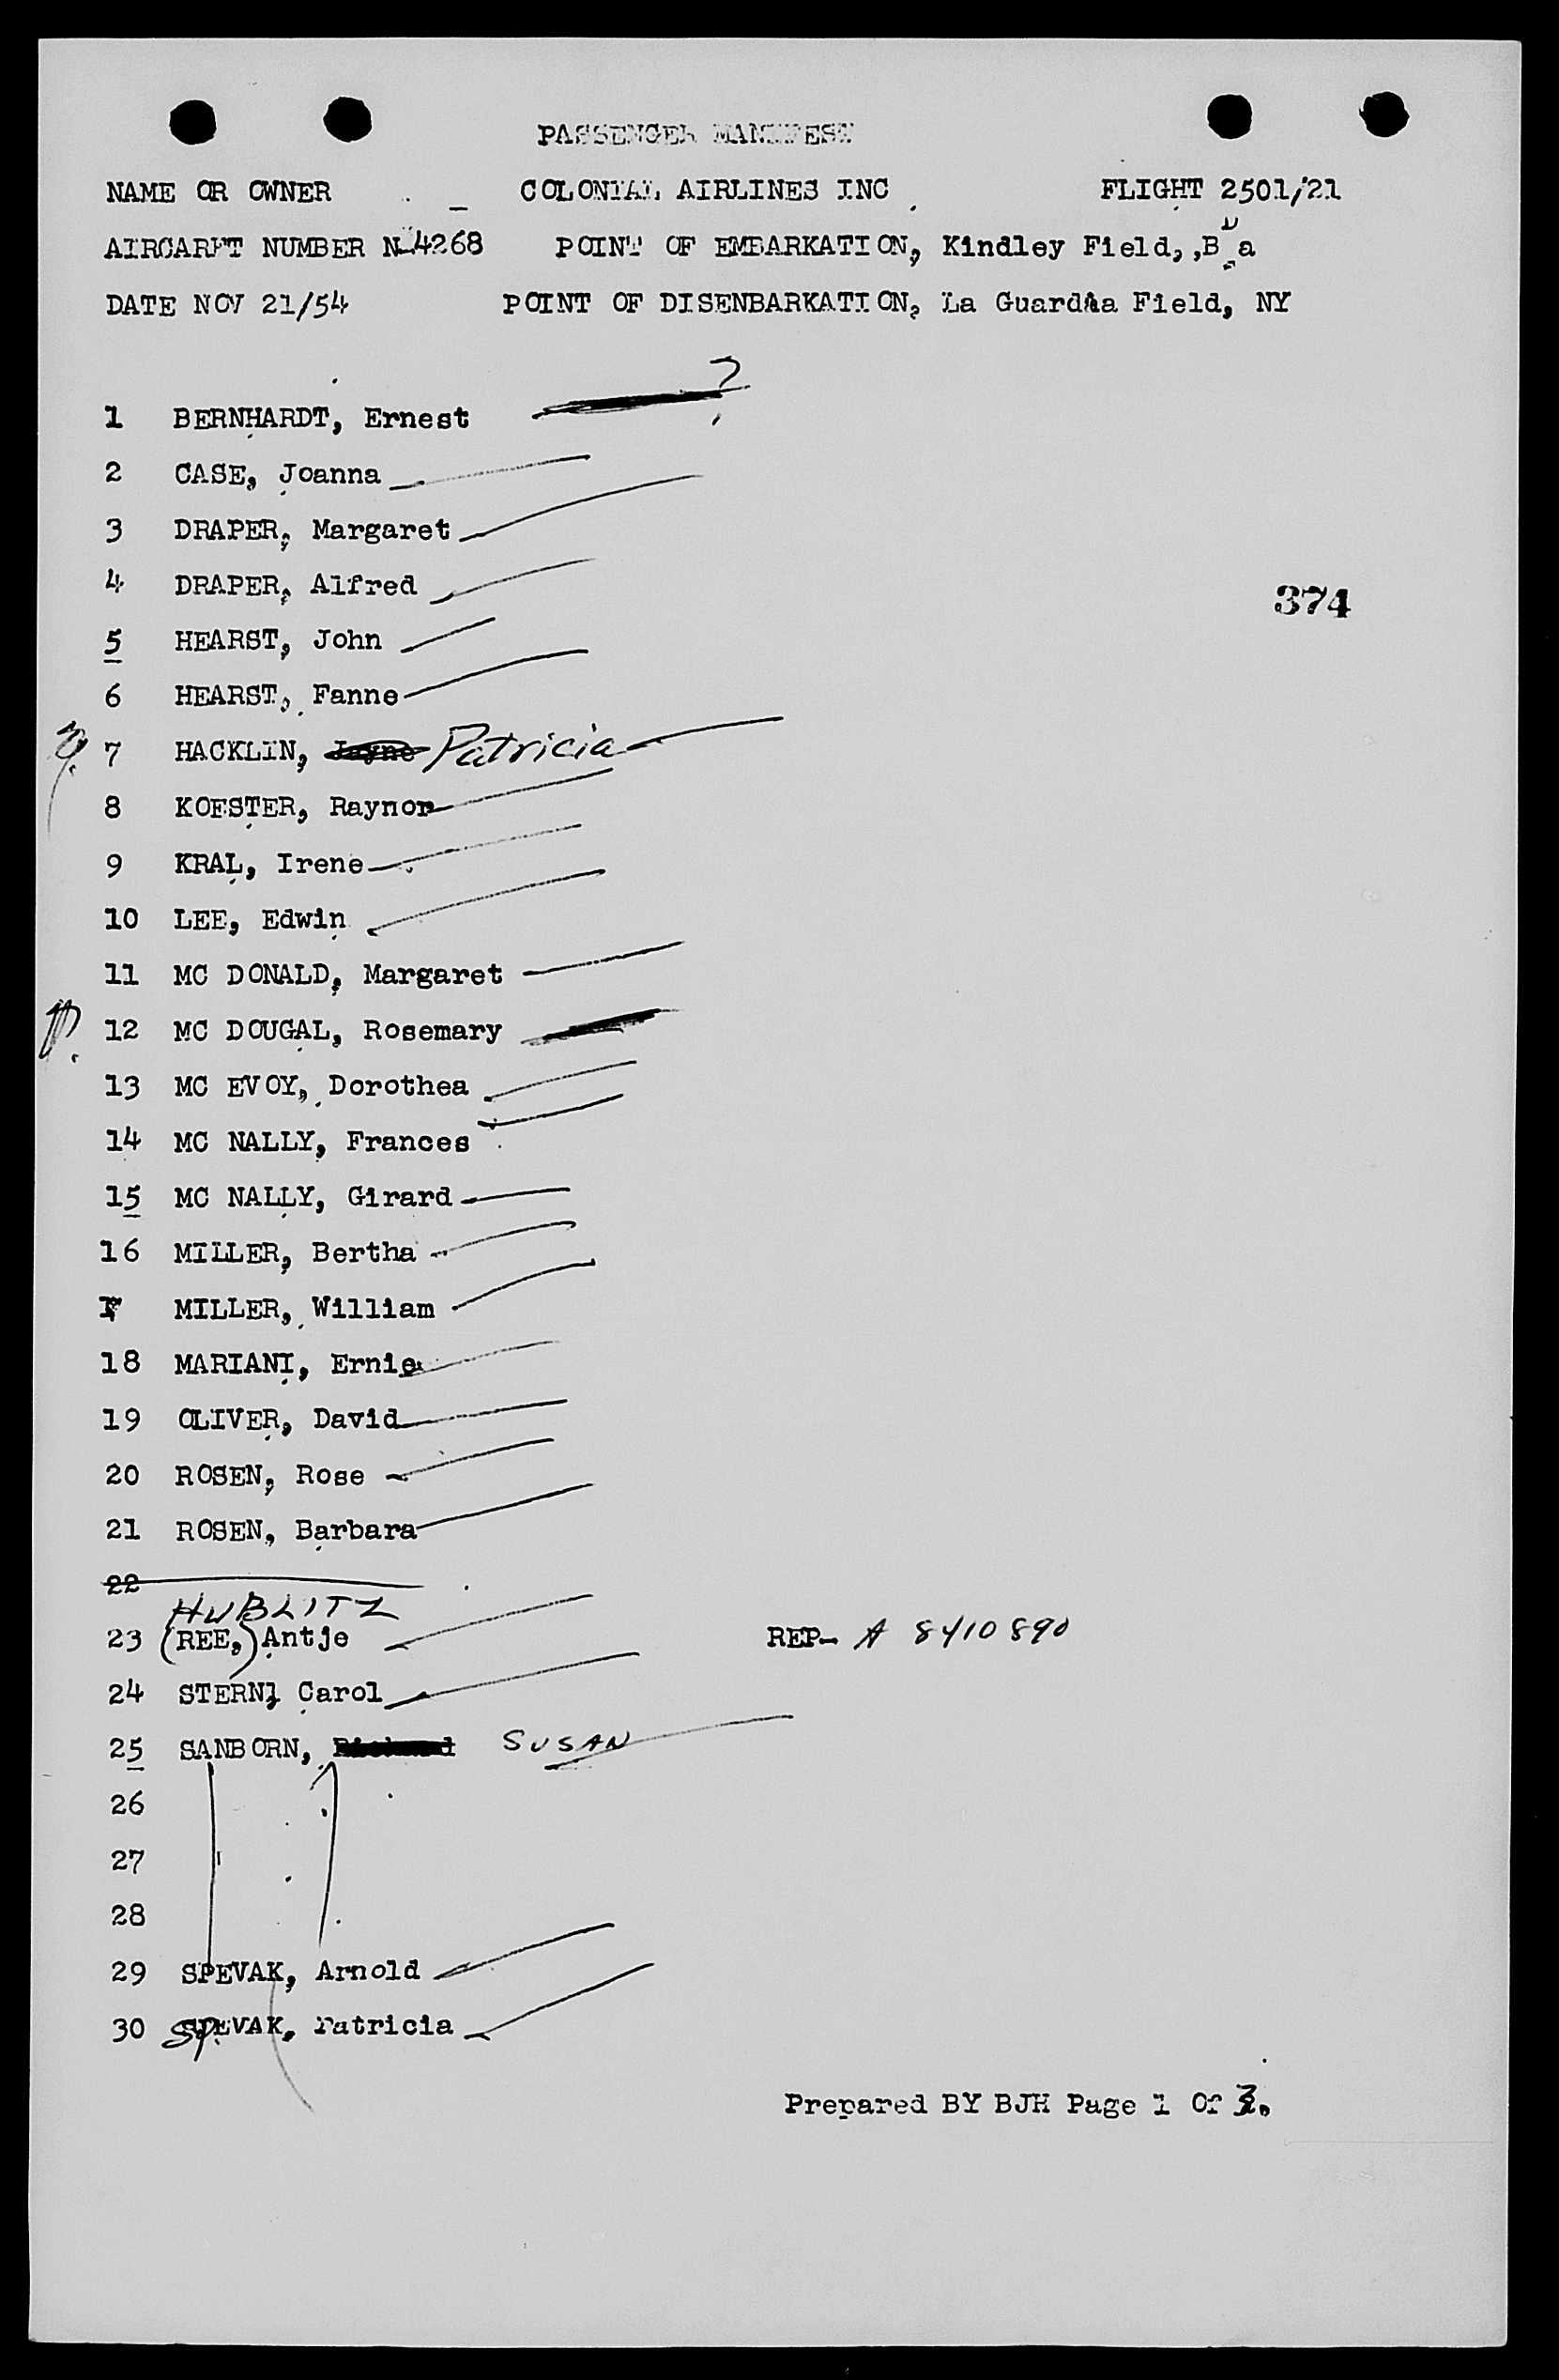 PASSENGER MANIFEST
NAME OR OWNER _ COLONIAL AIRLINES INC FLIGHT 2501/21
AIRCARFT NUMBER N-4268 POINT OF EMBARKATION, Kindley Field, ,Bda
DATE NOV 21/54 POINT OF DISENBARKATION, La Guardia Field, NY
1 BERNHARDT, Ernest ?
2 CASE, Joanna
3 DRAPER, Margaret
4 DRAPER, Alfred
374
5 HEARST, John
6 HEARST, Fanne
7 HACKLIN, Jayne Patricia
8 KOESTER, Raynor
9 KRAL, Irene
10 LEE, Edwin
11 MC DONALD, Margaret
12 MC DOUGAL, Rosemary
13 MC EVOY, Dorothea
14 MC NALLY, Frances
15 MC NALLY, Girard
16 MILLER, Bertha
17 MILLER, William
18 MARIANI, Ernie
19 OLIVER, David
20 ROSEN, Rose
21 ROSEN, Barbara
22
HUBLITZ
23 (REE,) Antje REP- A 8410890
24 STERN, Carol
25 SANBORN, Richard SUSAN
26
27
28
29 SPEVAK, Arnold
30 SPEVAK, Patricia
Prepared BY BJH Page 1 Of 3.